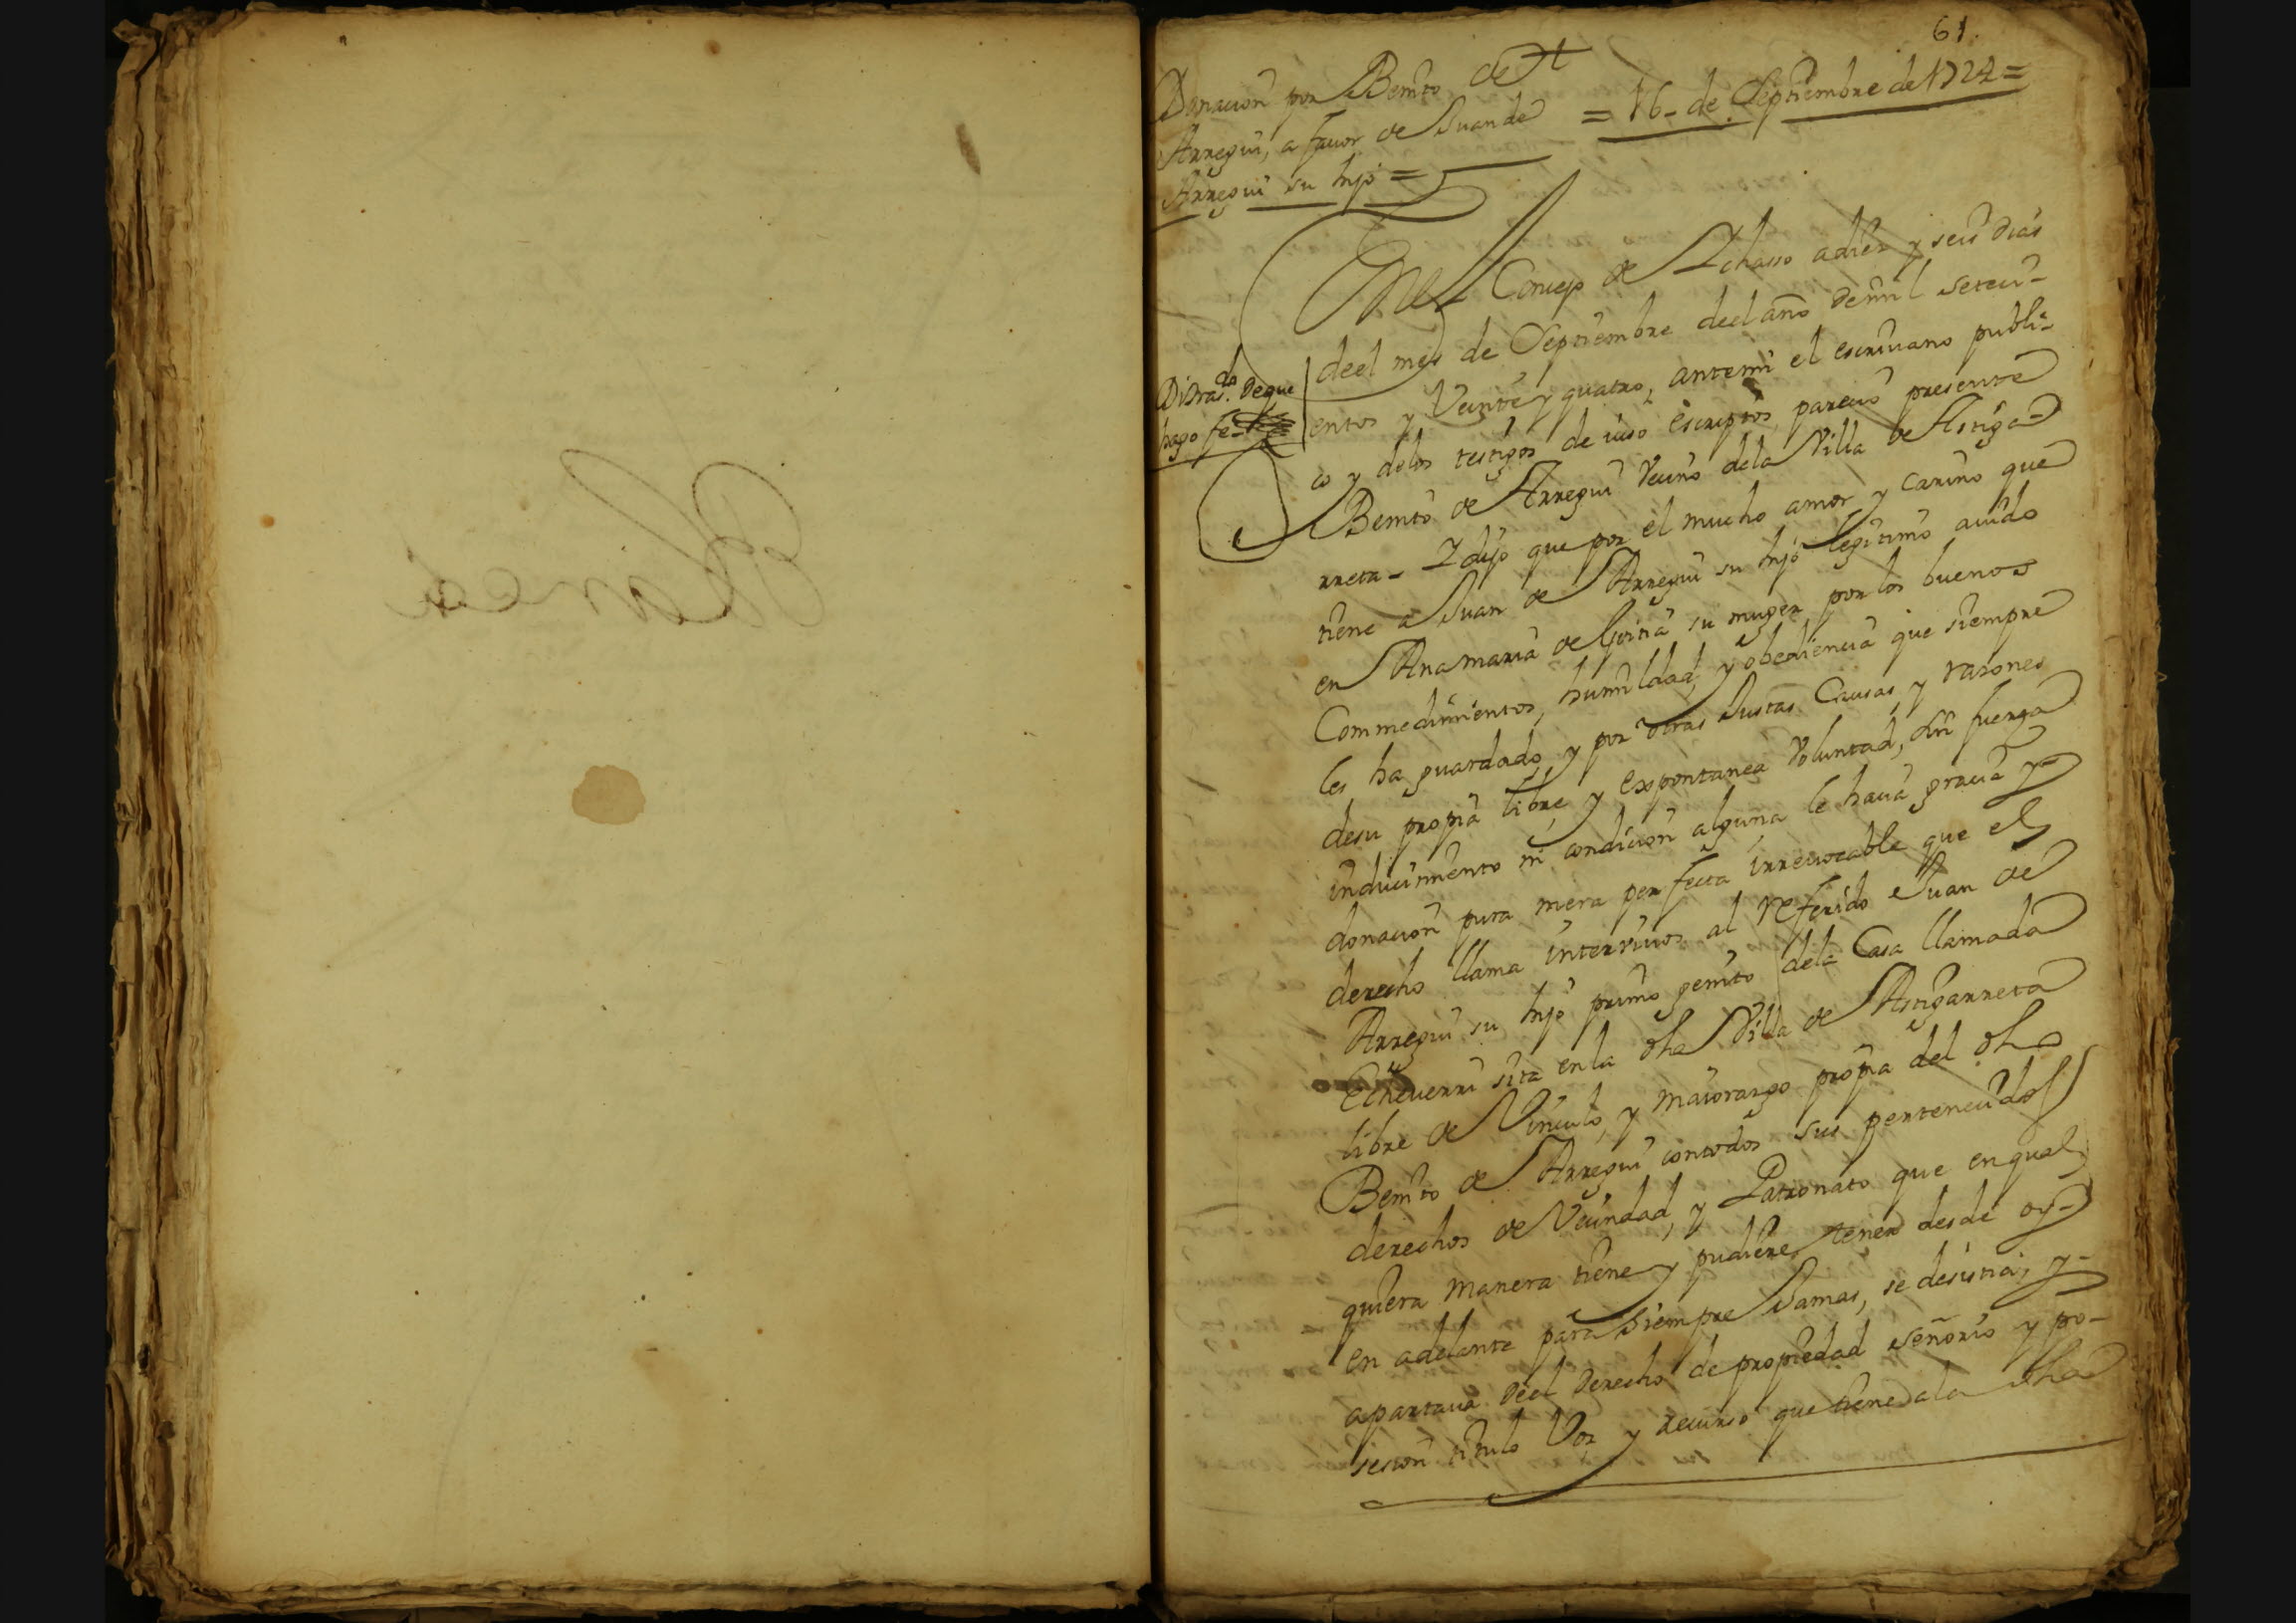 Blanca
61.
Donacion por Benito de
Arregui, a favor de Juan de
Arregui su hijo =
= 16 - de Septiembre de 1724 =
En el Concejo de Ichasso a diez y seis dias
deel mes de Septiembre deel año de mil seteci-
entos y Veinte y quatro, antemi el escrivano publi-
co y delos testigos de iuso escriptos, parecio presente
Benito de Arregui Vecino dela Villa de Astiga-
rreta - I dijo que por el mucho amor y cariño que
tiene a Juan de Arregui su hijo legitimo auido
en Ana maria de Goitia su muger por los buenos
Commedimientos, humildad, y obediencia que siempre
les ha guardado, y por otras Justas Causas, y rasones
desu propia libre, y expontanea Voluntad, sin fuerza
inducimiento ni condicion alguna le hacia gracia y
donacion pura mera perfecta irrevocable que el
derecho llama intervivos al referido Juan de
Arregui su hijo primo genito dela Casa llamada
Echeverri sita en la dha Villa de Astigarreta
libre de Vinculo, y maiorazgo propia del dho
Benito de Arregui con todos sus pertenecidos
derechos de Vecindad, y Patronato que en qual
quiera manera tiene y pudiere tener desde oy
en adelante para siempre Jamas, se desistia, y
apartava deel derecho de propiedad señorio y po-
sesion titulo Voz y recurso que tiene ala dha
de que
hago fe -